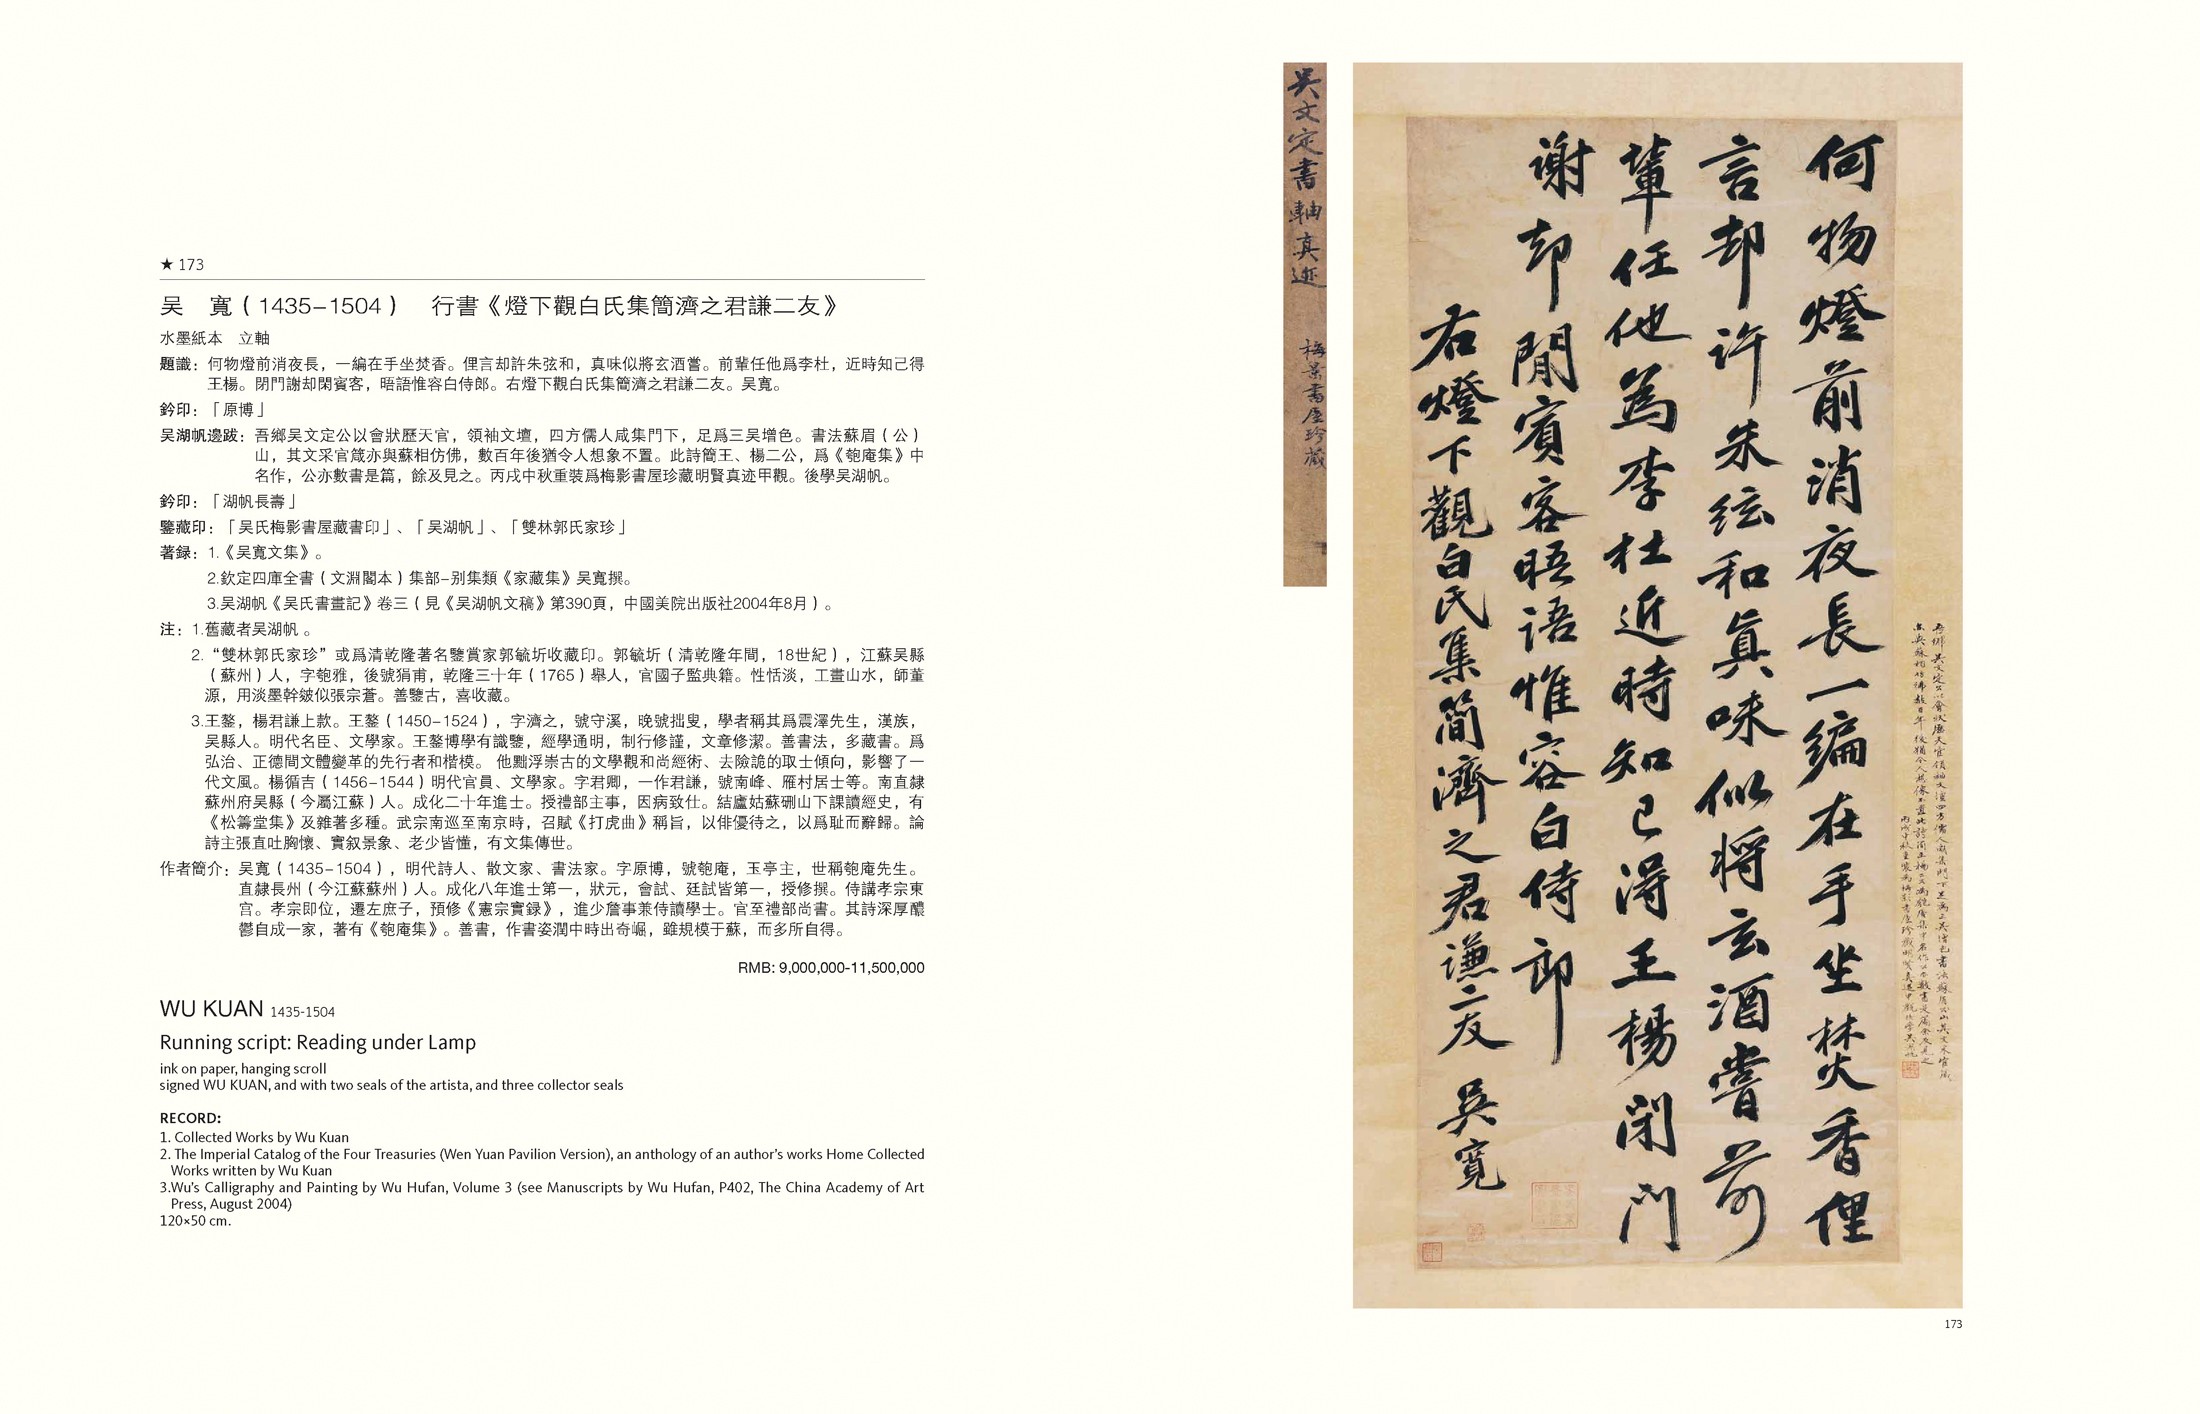 ★ 173
吴　寬（1435–1504）　行書《燈下觀白氏集簡濟之君謙二友》
水墨紙本　立軸
題識：何物燈前消夜長，一編在手坐焚香。俚言却許朱弦和，真味似將玄酒嘗。前輩任他爲李杜，近時知己得
王楊。閉門謝却閑賓客，晤語惟容白侍郎。右燈下觀白氏集簡濟之君謙二友。吴寬。
鈐印：「原博」
吴湖帆邊跋：吾鄉吴文定公以會狀歷天官，領袖文壇，四方儒人咸集門下，足爲三吴增色。書法蘇眉（公）
山，其文采官箴亦與蘇相仿佛，數百年後猶令人想象不置。此詩簡王、楊二公，爲《匏庵集》中
名作，公亦數書是篇，餘及見之。丙戌中秋重裝爲梅影書屋珍藏明賢真迹甲觀。後學吴湖帆。
鈐印：「湖帆長壽」
鑒藏印：「吴氏梅影書屋藏書印」、「吴湖帆」、「雙林郭氏家珍」
著録：1.《吴寬文集》。
2.欽定四庫全書（文淵閣本）集部–别集類《家藏集》吴寬撰。
3.吴湖帆《吴氏書畫記》卷三（見《吴湖帆文稿》第390頁，中國美院出版社2004年8月）。
注：1.舊藏者吴湖帆 。
2.“雙林郭氏家珍”或爲清乾隆著名鑒賞家郭毓圻收藏印。郭毓圻（清乾隆年間，18世紀），江蘇吴縣
（蘇州）人，字匏雅，後號狷甫，乾隆三十年（1765）舉人，官國子監典籍。性恬淡，工畫山水，師董
源，用淡墨幹皴似張宗蒼。善鑒古，喜收藏。
3.王鏊，楊君謙上款。王鏊（1450-1524），字濟之，號守溪，晚號拙叟，學者稱其爲震澤先生，漢族，
吴縣人。明代名臣、文學家。王鏊博學有識鑒，經學通明，制行修謹，文章修潔。善書法，多藏書。爲
弘治、正德間文體變革的先行者和楷模。 他黜浮崇古的文學觀和尚經術、去險詭的取士傾向，影響了一
代文風。楊循吉（1456-1544）明代官員、文學家。字君卿，一作君謙，號南峰、雁村居士等。南直隸
蘇州府吴縣（今屬江蘇）人。成化二十年進士。授禮部主事，因病致仕。結廬姑蘇硎山下課讀經史，有
《松籌堂集》及雜著多種。武宗南巡至南京時，召賦《打虎曲》稱旨，以俳優待之，以爲耻而辭歸。論
詩主張直吐胸懷、實叙景象、老少皆懂，有文集傳世。
作者簡介：吴寬（1435–1504），明代詩人、散文家、書法家。字原博，號匏庵，玉亭主，世稱匏庵先生。
直隸長州（今江蘇蘇州）人。成化八年進士第一，狀元，會試、廷試皆第一，授修撰。侍講孝宗東
宫。孝宗即位，遷左庶子，預修《憲宗實録》，進少詹事兼侍讀學士。官至禮部尚書。其詩深厚醲
鬱自成一家，著有《匏庵集》。善書，作書姿潤中時出奇崛，雖規模于蘇，而多所自得。
RMB: 9,000,000-11,500,000
WU KUAN 1435-1504
Running script: Reading under Lamp
ink on paper, hanging scroll
signed WU KUAN, and with two seals of the artista, and three collector seals
RECORD:
1. Collected Works by Wu Kuan
2. The Imperial Catalog of the Four Treasuries (Wen Yuan Pavilion Version), an anthology of an author's works Home Collected
Works written by Wu Kuan
3.Wu's Calligraphy and Painting by Wu Hufan, Volume 3 (see Manuscripts by Wu Hufan, P402, The China Academy of Art
Press, August 2004)
120×50 cm.
吴文定書軸真迹
梅景書屋珍藏
何物燈前消夜長一編在手坐焚香俚
言却許朱弦和真味似將玄酒嘗前
輩任他為李杜近時知己得王楊閉門
謝却閒賓客晤語惟容白侍郎
右燈下觀白氏集簡濟之君謙二友　吳寬
吾鄉吴文定公以會狀歷天官領袖文壇四方儒人咸集門下足為三吴增色書法蘇眉公山其文采官箴
亦與蘇相仿佛數百年後猶令人想像不置此詩簡王楊二公為匏庵集中名作公亦數書是篇余及見之
丙戌中秋重裝為梅影書屋珍藏明賢真迹甲觀後學吴湖帆
173